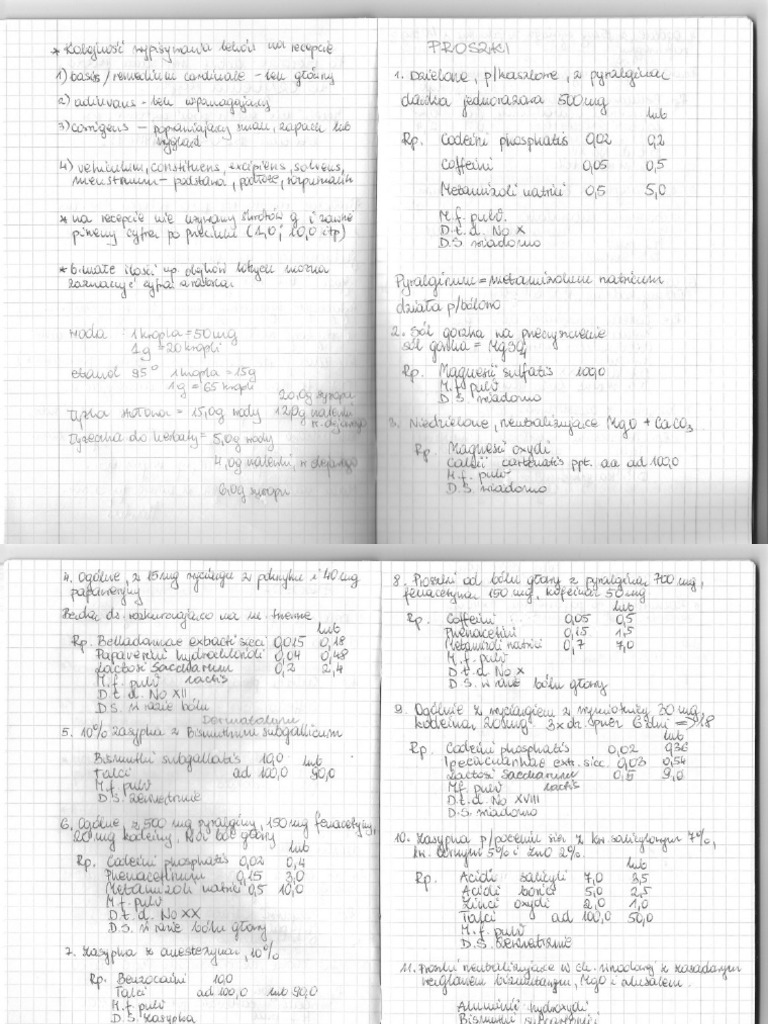 * Kolejność wypisywania leków na recepcie
1) basis / remedium cardinale - lek główny
2) adiuvans - lek wspomagający
3) corrigens - poprawiający smak, zapach lub
wygląd
4) vehiculum, constituens, excipiens, solvens,
menstruum - podstawa, podłoże, rozpuszczalnik
* na recepcie nie używamy skrótów g i zawsze
piszemy cyfrę po przecinku (1,0; 10,0 itp)
* b. małe ilości np. olejków lotnych można
zaznaczyć cyfrą
woda : 1 kropla = 50 mg
1g = 20 kropli
etanol 95° 1 kropla = 15g
1g = 65 kropli
20,0g syropu
łyżka stołowa = 15,0g wody 12,0g nalewki
łyżeczka do herbaty = 5,0g wody
4,0g nalewki,
6,0g syropu
PROSZKI
1. Dzielone, p/kaszlowe, z pyralginą
dawka jednorazowa 500mg
lub
Rp. Codeini phosphatis 0,02 0,2
Coffeini 0,05 0,5
Metamizoli natrici 0,5 5,0
M.f. pulv.
D.t.d. No X
D.S. wiadomo
Pyralginum = metamizolum natricum
działa p/bólowo
2. Sól gorzka na przeczyszczenie
sól gorzka = MgSO4
Rp. Magnesii sulfatis 100,0
M.f. pulv
D.S. wiadomo
3. Niedzielone, neutralizujące MgO + CaCO3
Rp. Magnesii oxydi
Calcii carbonatis ppt. aa ad 100,0
M.f. pulv
D.S. wiadomo
4. Ogólnie, z 15 mg wyciągu z pokrzyku i 40 mg
papaweryny
Będą dz. rozkurczająco na m. gładkie
lub
Rp. Belladonnae extracti sicci 0,015 0,18
Papaverini hydrochloridi 0,04 0,48
Lactosi Saccharum 0,2 2,4
M.f. pulv lactis
D.t.d. No XII
D.S. w razie bólu
Dermatolum
5. 10% zasypka z Bismuthum subgallicum
Bismuthi subgallatis 10,0 lub
Talci ad 100,0 90,0
M.f. pulv
D.S. zewnętrznie
6. Ogólne, z 500 mg pyralginy, 150 mg fenacetyny,
20 mg kodeiny, na ból głowy
lub
Rp. Codeini phosphatis 0,02 0,4
Phenacetinum 0,15 3,0
Metamizoli natrici 0,5 10,0
M.f. pulv
D.t.d. No XX
D.S. w razie bólu głowy
7. Zasypka z anestezyną, 10%
Rp. Benzocaini 10,0
Talci ad 100,0 lub 90,0
M.f. pulv
D.S. zasypka
8. Proszki od bólu głowy z pyralginą 700 mg,
fenacetyną 150 mg, kofeiną 50 mg
lub
Rp. Coffeini 0,05 0,5
Phenacetini 0,15 1,5
Metamizoli natrici 0,7 7,0
M.f. pulv
D.t.d. No X
D.S. w razie bólu głowy
9. Ogólnie z wyciągiem z wymiotnicy 30 mg,
kodeiną, 20 mg 3x dz. przez 6 dni => 18
lub
Rp. Codeini phosphatis 0,02 0,36
Ipecacuanhae extr. sicc. 0,03 0,54
Lactosi Saccharum 0,5 9,0
M.f. pulv lactis
D.t.d. No XVIII
D.S. wiadomo
10. Zasypka p/poceniu się z kw. salicylowym 7%,
kw. bornym 5% i ZnO 2%.
lub
Rp. Acidi salicyli 7,0 3,5
Acidi borici 5,0 2,5
Zinci oxydi 2,0 1,0
Talci ad 100,0 50,0
M.f. pulv
D.S. zewnętrznie
11. Proszki neutralizujące w ch. wrzodowej z zasadowym
węglanem bizmutawym, MgO i alusalem.
Aluminii hydroxydi
Bismuthi subcarbonici